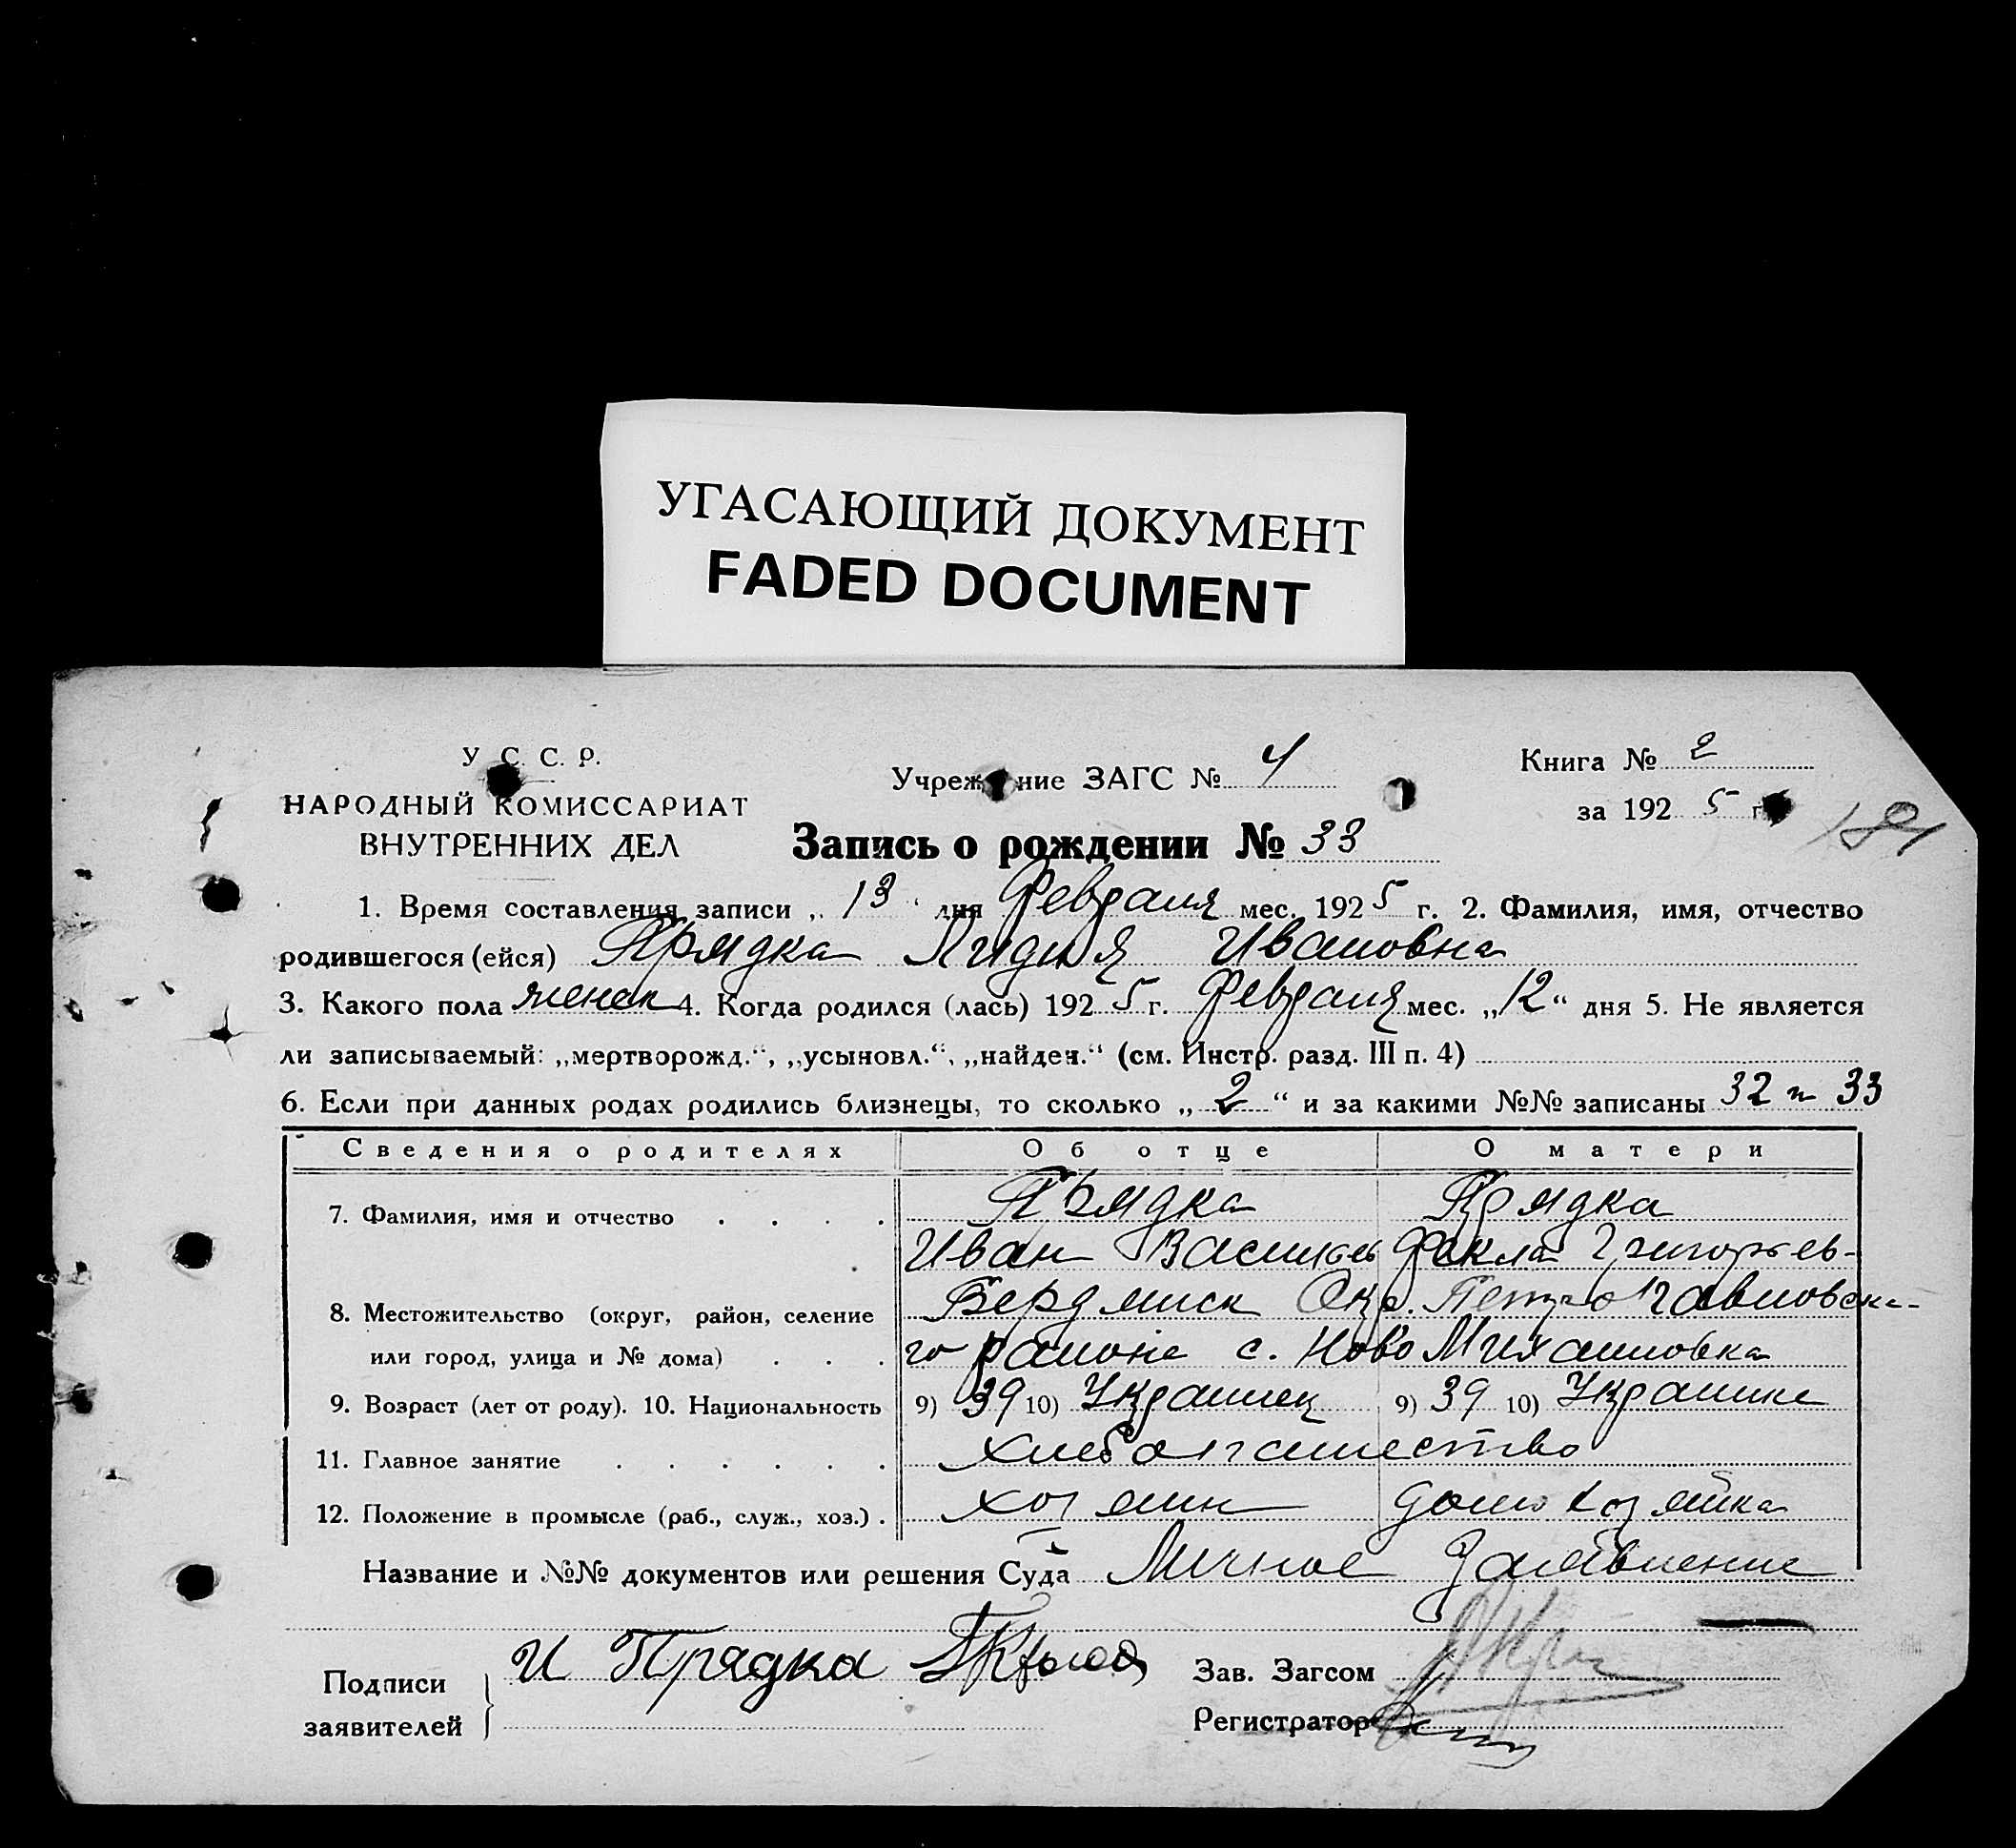 УГАСАЮЩИЙ ДОКУМЕНТ
FADED DOCUMENT
У С. С. Р.
НАРОДНЫЙ КОМИССАРИАТ
ВНУТРЕННИХ ДЕЛ
Учреж ние ЗАГС № 4
Книга № 2
за 192 5 г.
181
Запись о рождении № 33
1. Время составления записи „ 13 " дня Февраля мес. 1925 г. 2. Фамилия, имя, отчество
родившегося (ейся) Прядка Лидия Ивановна
3. Какого пола женск 4. Когда родился (лась) 192 5 г. Февраля мес. „12“ дня 5. Не является
ли записываемый: „мертворожд.“, „усыновл.“, „найден.“ (см. Инстр. разд. III п. 4)
6. Если при данных родах родились близнецы, то сколько „ 2 “ и за какими №№ записаны 32 и 33
Сведения о родителях Об отце О матери
7. Фамилия, имя и отчество Прядка Прядка
Иван Васильев Фекла Григорьев-
8. Местожительство (округ, район, селение Бердянск Окр. Петро Павловско-
или город, улица и № дома) го района с. Ново Михайловка
9. Возраст (лет от роду). 10. Национальность 9) 39 10) Украинец 9) 39 10) Украинка
11. Главное занятие хлебопашество
12. Положение в промысле (раб., служ., хоз.) хозяин домохозяйка
Название и №№ документов или решения Суда Личное Заявление
Подписи
заявителей
И Прядка
Зав. Загсом
Регистратор